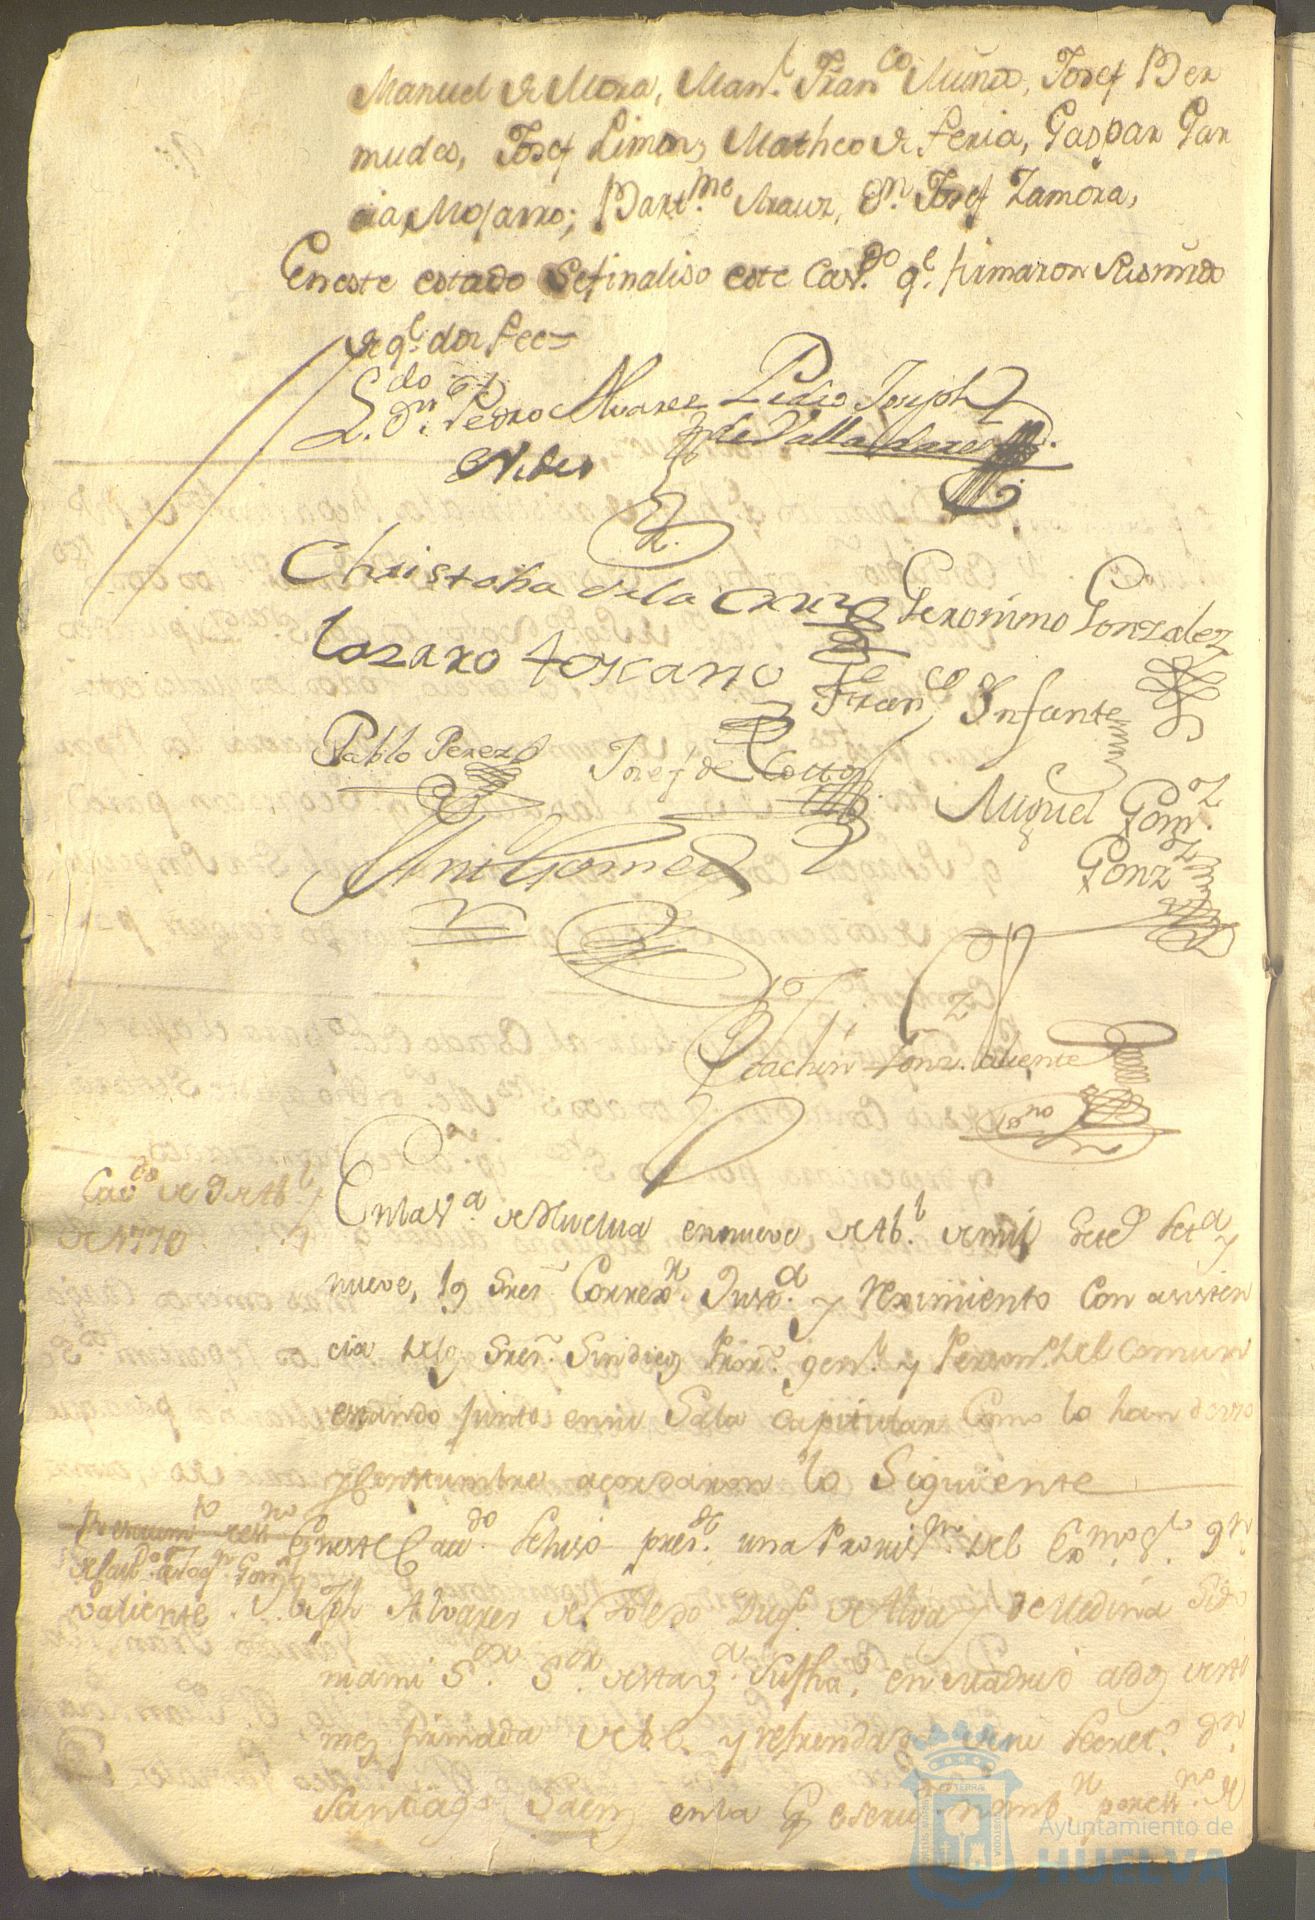 Manuel de Mora, Man.l Fran.co Muños, Josef Ber
mudes, Josef Limon, Matheo de feria, Gaspar Gar
cia Mojarro; Bart.me Arauz, Dn. Josef Zamora,
En este estado Sefinaliso este Cav.do q.e firmaron
de q.e doi fee=
L.do Dn. Pedro Alvarez Pedro Joseph
de Valladares
Christoba dela Cruz Geronimo Gonzalez
Lozaro toscano Fran.co Infante
Pablo Perez Josef de Cotto
Miguel Gom.z
Ant Gomez
Gonz.z
Joachin Gonz.z Valiente
ss.no
Cav.do de 9 de Ab.l
de 1770
En la V.a de Huelva en nueve de Ab.l de mil Setec.s Set.a y
nueve, los Sres. Correx.r Just.a y reximiento Con asisten
cia delos Sres. Sindicos Pror. gen.l y Person.o del Comun
estando juntos en su Sala Capitular Como lo han de vso
y Costumbre acordaron lo Siguiente
En este Cav.do Sehiso pres.te una Provis.on del Ex.mo S.or Dn.
Valiente
Joseph Alvares de Toledo Duq.e de Alva y de Medina Sido
nia mi S.or S.or de esta V.a Su fha. en Madrid a dos de este
mes firmada de S.E. y refrendada de su Secret.o Dn.
Santiago Saenz en la q.e
Ayuntamiento de
HUELVA